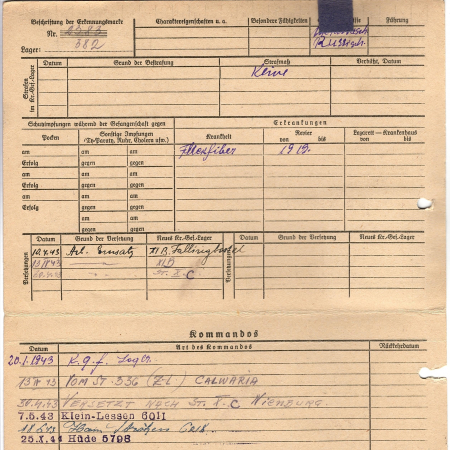 Beschriftung der Erkennungsmarke
Nr.
Lager: 682
Charaktereigenschaften u. a.
Besondere Fähigkeiten
Führung
Strafen im Kr.-Gef.-Lager
Datum
Grund der Bestrafung
Strafmaß
Verbüßt, Datum
Keine
Schutzimpfungen während der Gefangenschaft gegen
Erkrankungen
Pocken
Sonstige Impfungen
(Ty-Paraty, Ruhr, Cholera usw.)
Krankheit
Revier
von bis
Lazarett — Krankenhaus
von bis
am am am
Erfolg gegen gegen
am am am
Erfolg gegen gegen
am am am
Erfolg gegen gegen
am am
gegen gegen
1919.
Versetzungen
Datum
Grund der Versetzung
Neues Kr.-Gef.-Lager
Versetzungen
Datum
Grund der Versetzung
Neues Kr.-Gef.-Lager
Arb. Einsatz XI B. Fallingbostel
XI B
St. X. C
Kommandos
Datum
Art des Kommandos
Rückkehrdatum
20.1.1943 K.g.f.
VOM ST. 336 (Z-L) CALWARIA
VERSETZT NACH ST. X. C NIENBURG
7.5.43 Klein-Lessen 6011
25.X.44 Hüde 5798